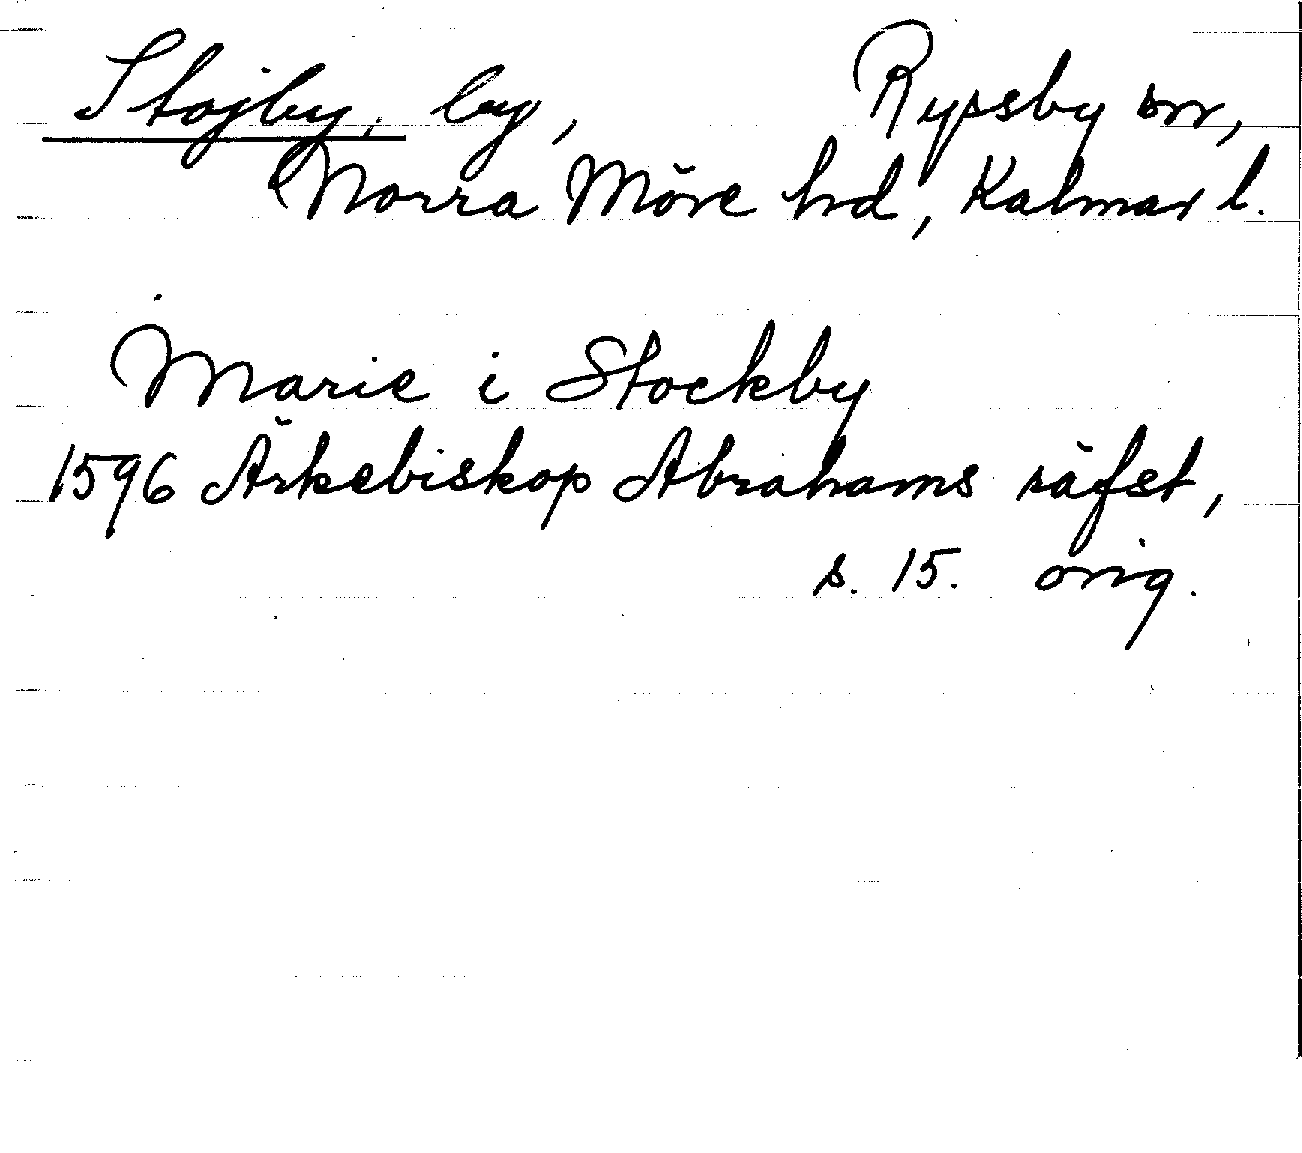 Stojby, by, Rypsby sn,
Norra Möre hd, Kalmar l.
Marie i Stockby
1596 Ärkebiskop Abrahams räfst,
s. 15. orig.